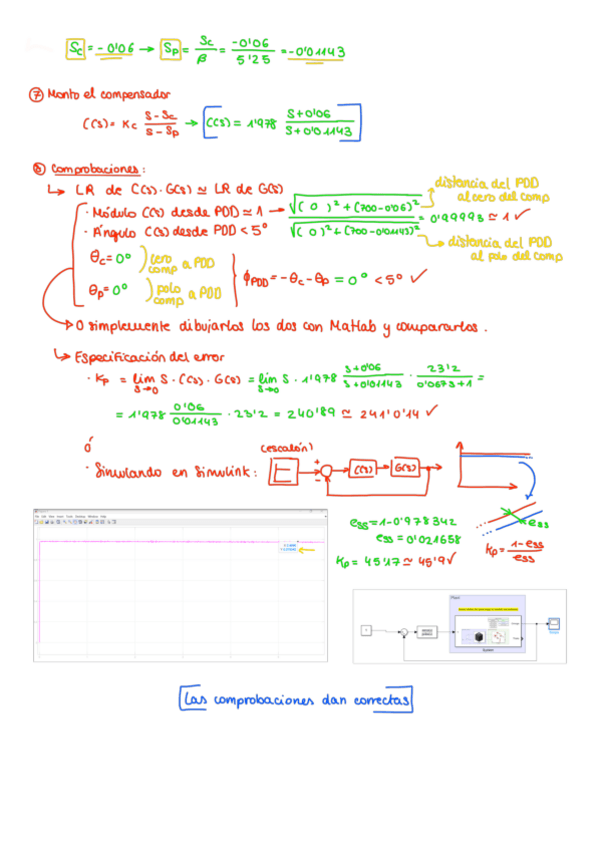 Sc = -0'06 → Sp = Sc/β = -0'06/5'25 = -0'01143
⑦ Monto el compensador
C(s) = Kc (s-Sc)/(s-Sp) → C(s) = 1'978 (s+0'06)/(s+0'01143)
⑧ Comprobaciones:
↳ LR de C(s)·G(s) ≃ LR de G(s)
· Módulo C(s) desde PDD ≃ 1 → √((0)²+(700-0'06)²)/√((0)²+(700-0'01143)²) = 0'99993 ≃ 1 ✓
distancia del PDD al cero del comp
distancia del PDD al polo del comp
· Ángulo C(s) desde PDD < 5°
θc = 0° ) cero comp a PDD
θp = 0° ) polo comp a PDD
ϕPDD = -θc - θp = 0° < 5° ✓
→ O simplemente dibujarlos los dos con Matlab y compararlos.
↳ Especificación del error
· Kp = lim s→0 S · C(s) · G(s) = lim s→0 S · 1'978 (s+0'06)/(s+0'01143) · 23'2/(0'067s+1) =
= 1'978 0'06/0'01143 · 23'2 = 240'89 ≃ 241'0'14 ✓
ó
· Simulando en Simulink:
(escalón)
+
-
C(s)
G(s)
ess
ess = 1-0'978342
ess = 0'021658
Kp = 45'17 ≃ 45'9 ✓
Kp = (1-ess)/ess
Las comprobaciones dan correctas